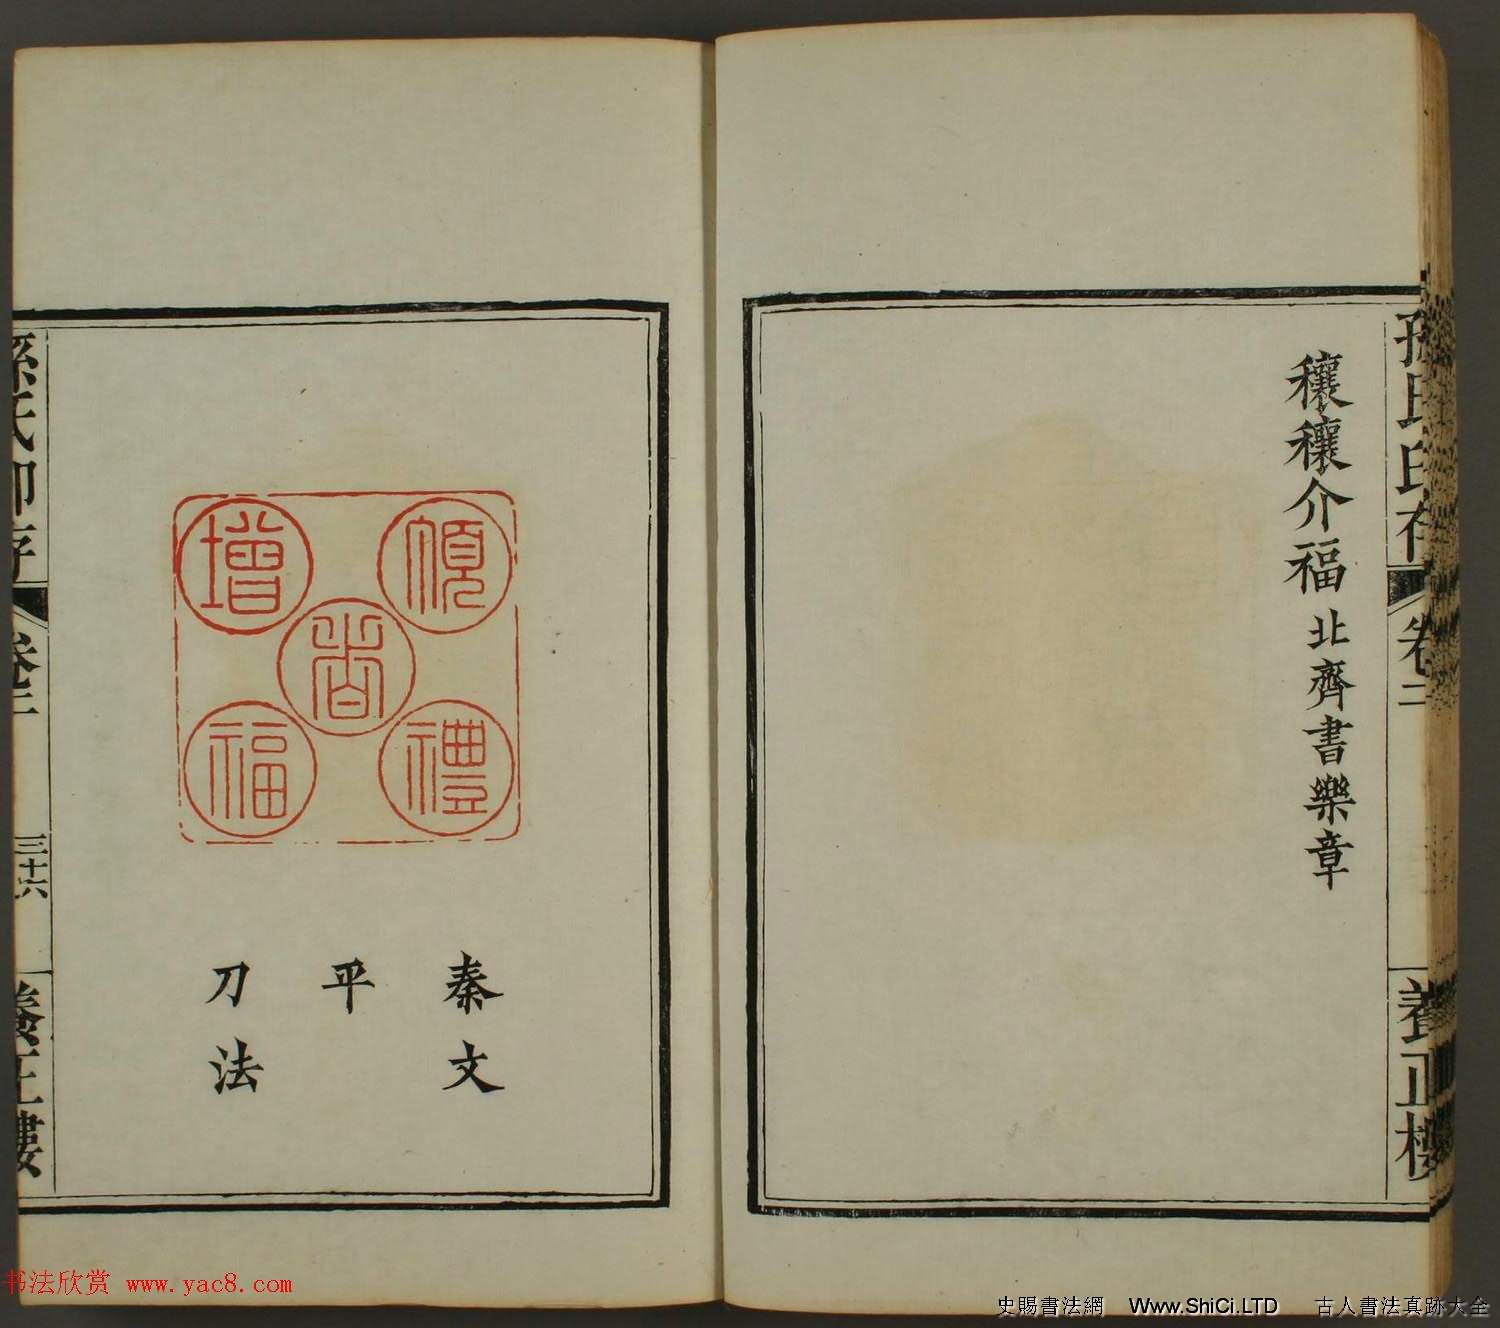 孫氏印存
卷二
養正樓
穰穰介福 北齊書樂章
禮
增
福
秦文
平
刀法
孫氏印存
卷二
三十六
養正樓
书法欣赏 www.yac8.com
史賜書法網 Www.ShiCi.LTD 古人書法真跡大全